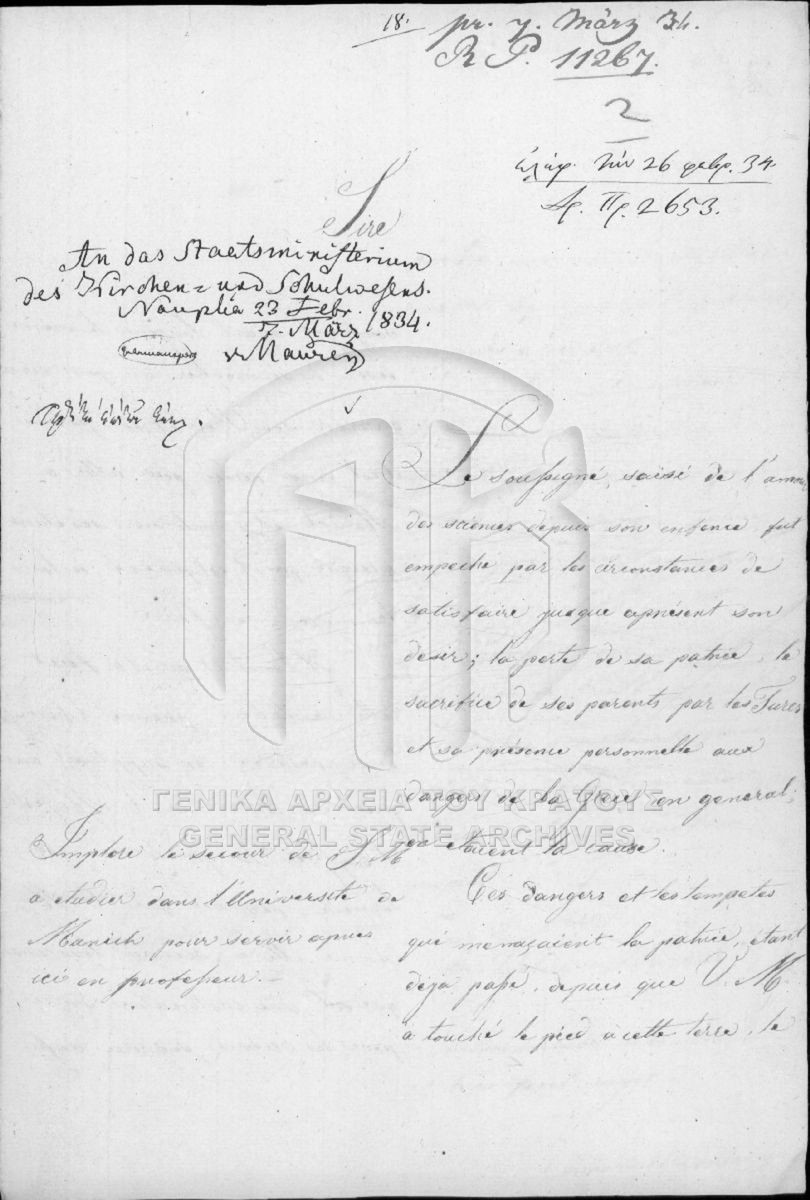 18.
pr. 7. März 34.
R P. 11267.
2
ἐλήφ. τὴν 26 φεβρ. 34.
Ἀρ. Πρ. 2653.
Sire
An das Staatsministerium
des Kirchen- und Schulwesens.
Nauplia 23 Febr.
7. März 1834.
v. Maurer
Le soussigné, saisi de l'amour
des sciences depuis son enfence fut
empeché par les circonstances de
satisfaire jusque apresent son
desir; la perte de sa patrie, le
sacrifice de ses parents par les Turcs
et sa présence personnelle aux
dangers de la Grece en general,
etaient la cause.
Ces dangers et les tempetes
qui menaçaient la patrie, etant
déja passé, depuis que V. M.
a touché le pied a cette terre, le
Implore le secour de S. M
a etudier dans l'Université de
Munich pour servir apres
ici en professeur.
ΓΕΝΙΚΑ ΑΡΧΕΙΑ ΤΟΥ ΚΡΑΤΟΥΣ
GENERAL STATE ARCHIVES